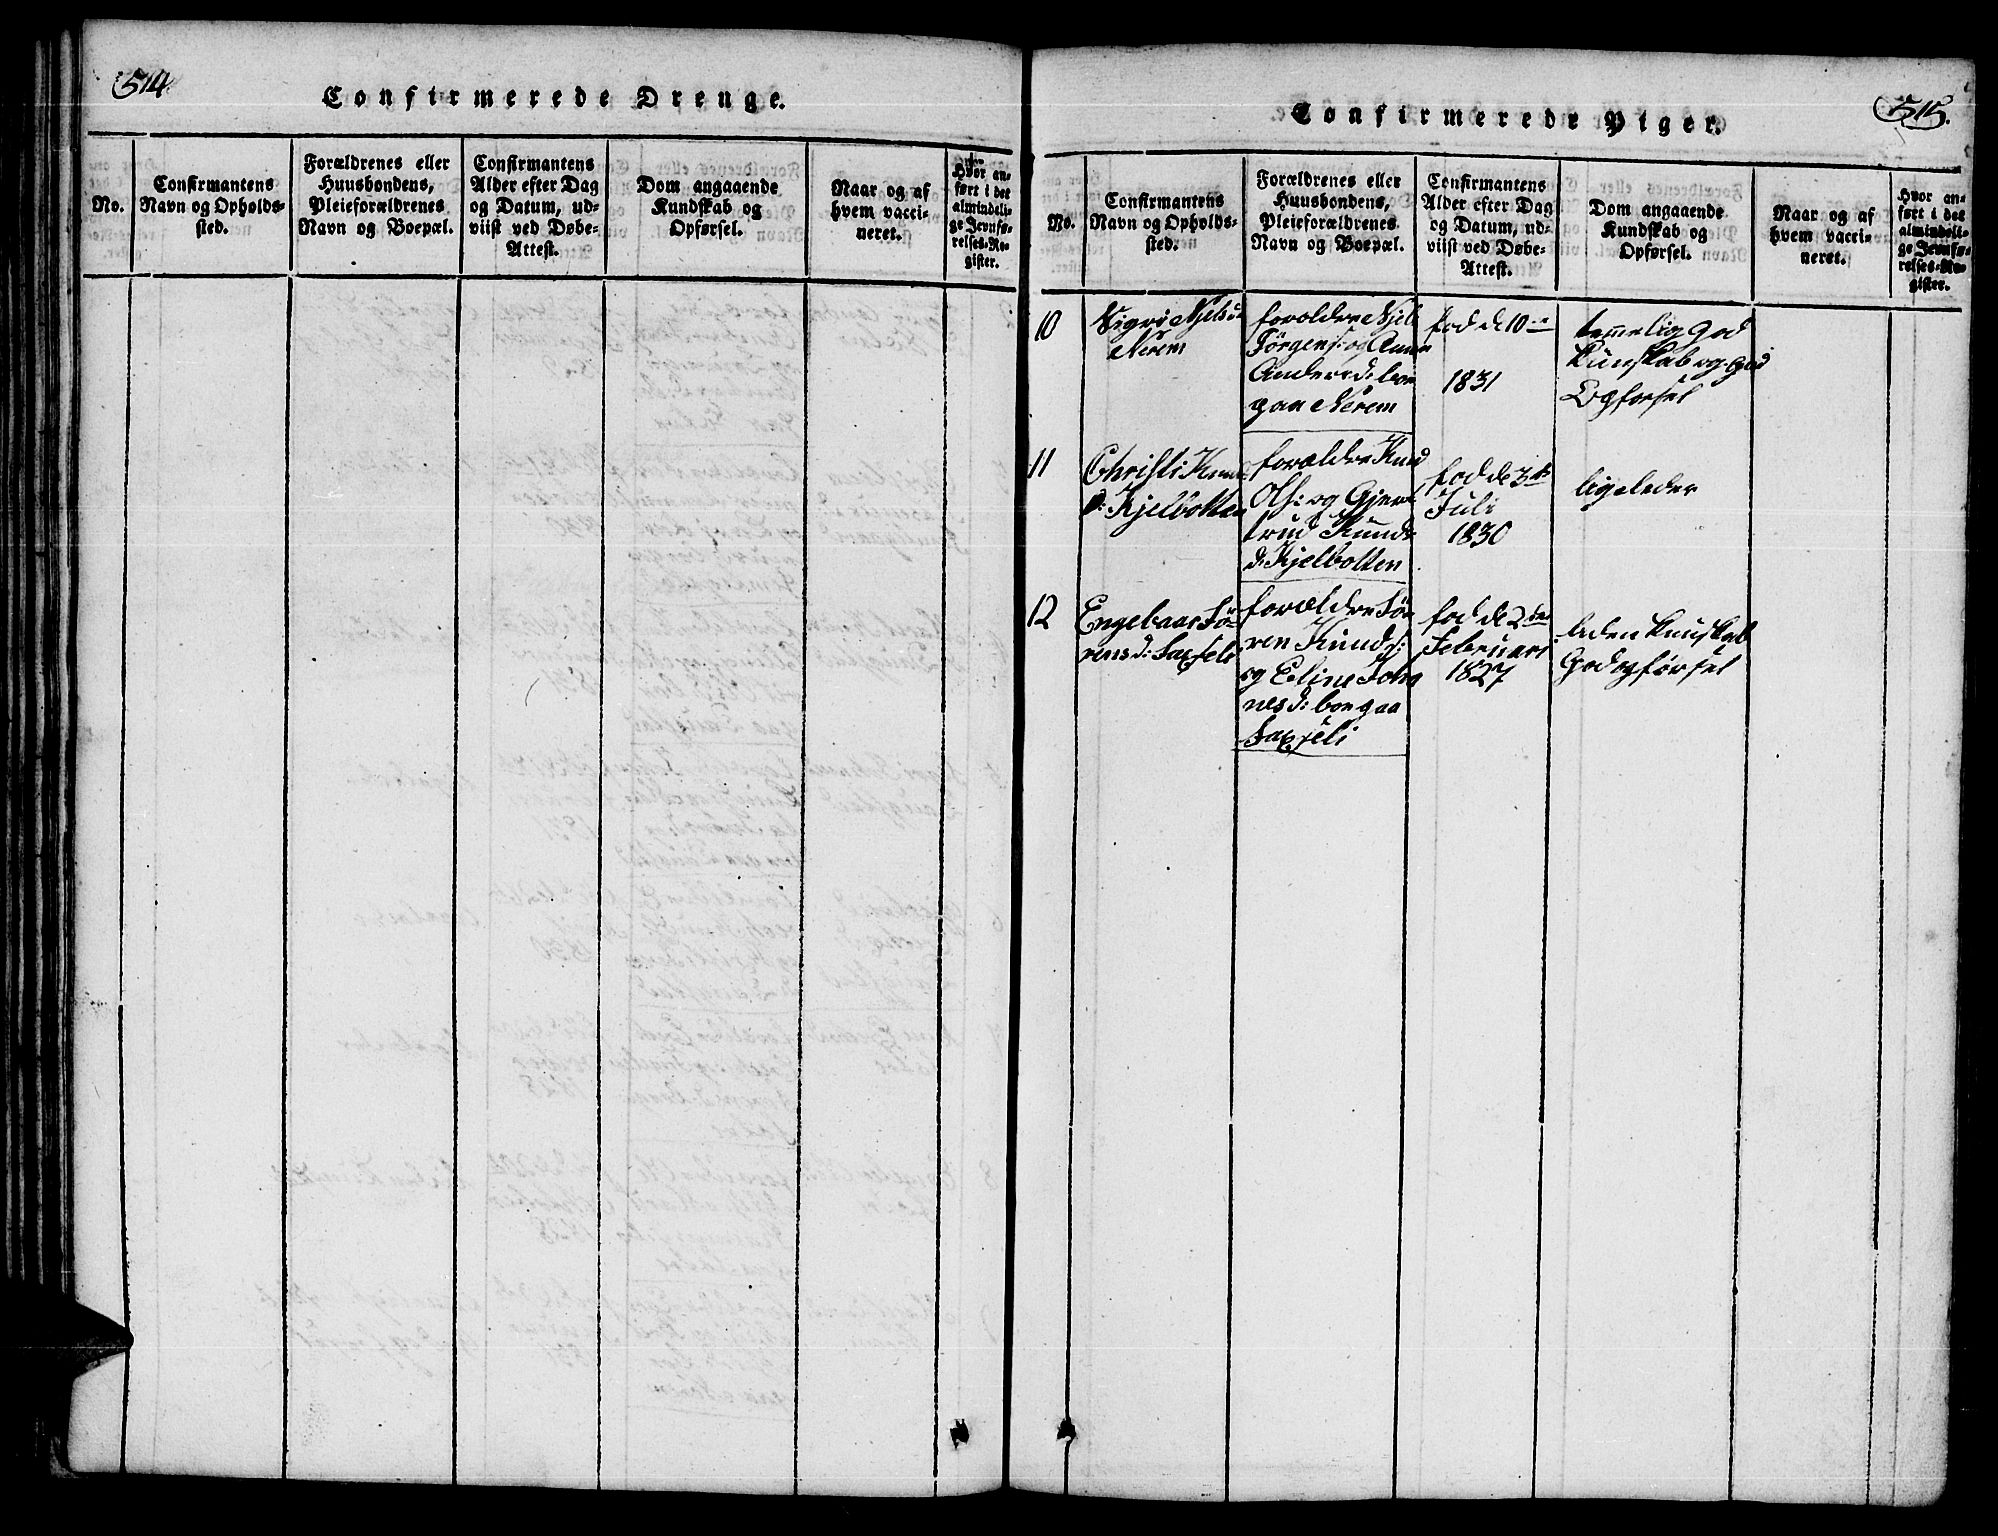 514.
Confirmerede Drenge.
No.
Confirmantens
Navn og Opholds-
sted.
Forældrenes eller
Huusbondens,
Pleieforældrenes
Navn og Boepæl.
Confirmantens
Alder efter Dag
og Datum, ud-
viist ved Døbe-
Attest.
Dom angaaende
Kundskab og
Opførsel.
Naar og af
hvem vacci-
neret.
Hvor an-
ført i det
almindeli-
ge Jevnfø-
relses-Re-
gister.
515.
Confirmerede Piger.
No.
Confirmantens
Navn og Opholds-
sted.
Forældrenes eller
Huusbondens,
Pleieforældrenes
Navn og Boepæl.
Confirmantens
Alder efter Dag
og Datum, ud-
viist ved Døbe-
Attest.
Dom angaaende
Kundskab og
Opførsel.
Naar og af
hvem vacci-
neret.
Hvor an-
ført i det
almindeli-
ge Jevnfø-
relses-Re-
gister.
10
Sigri
Nerem
foroldre
Jörgens: og
Andersd: bor
paa Nerem
fød de 10
1831
temelig God
Kunskab og God
Opforsel
11
Christi
d: Kjelbotten
forældre Knud
Ols: og Gjer
trud Knuds
d: Kjelbotten
fød de 3
Juli
1830
ligeledes
12
Engebaar Sö
rensd:
forældre Sör
ren Knuds:
og Eline Joha
nesd: bor paa
fød de 2
Februari
1827
liden Kunskab
God opførsel